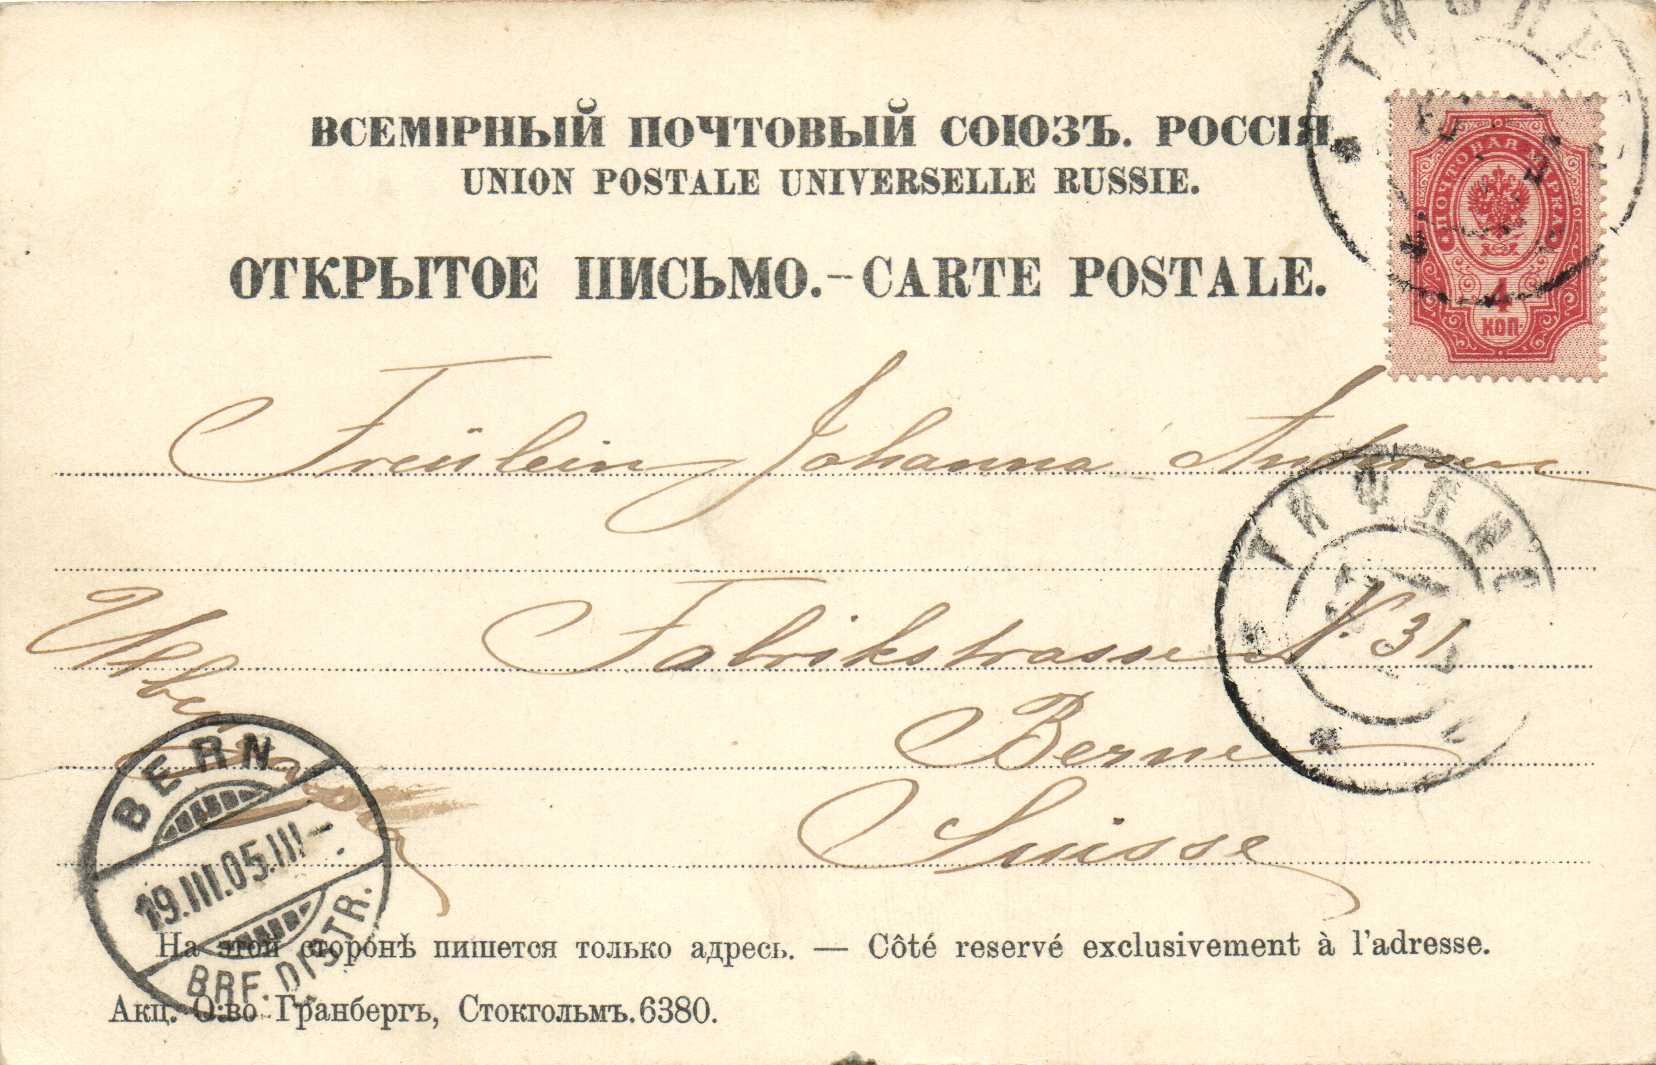 ТИФЛИ
ВСЕМІРНЫЙ ПОЧТОВЫЙ СОЮЗЪ. РОССІЯ
UNION POSTALE UNIVERSELLE RUSSIE.
ПОЧТОВАЯ МАРКА
4
КОП.
ОТКРЫТОЕ ПИСЬМО.–CARTE POSTALE.
Freülein Johanna
ТИФЛИС
Fabrikstrasse N. 31
Berne
Suisse
BERN
19.III.05.III–
BRF. DISTR.
На этой сторонѣ пишется только адресь. — Côté reservé exclusivement à l'adresse.
Акц. О:во Гранбергъ, Стокгольмъ. 6380.